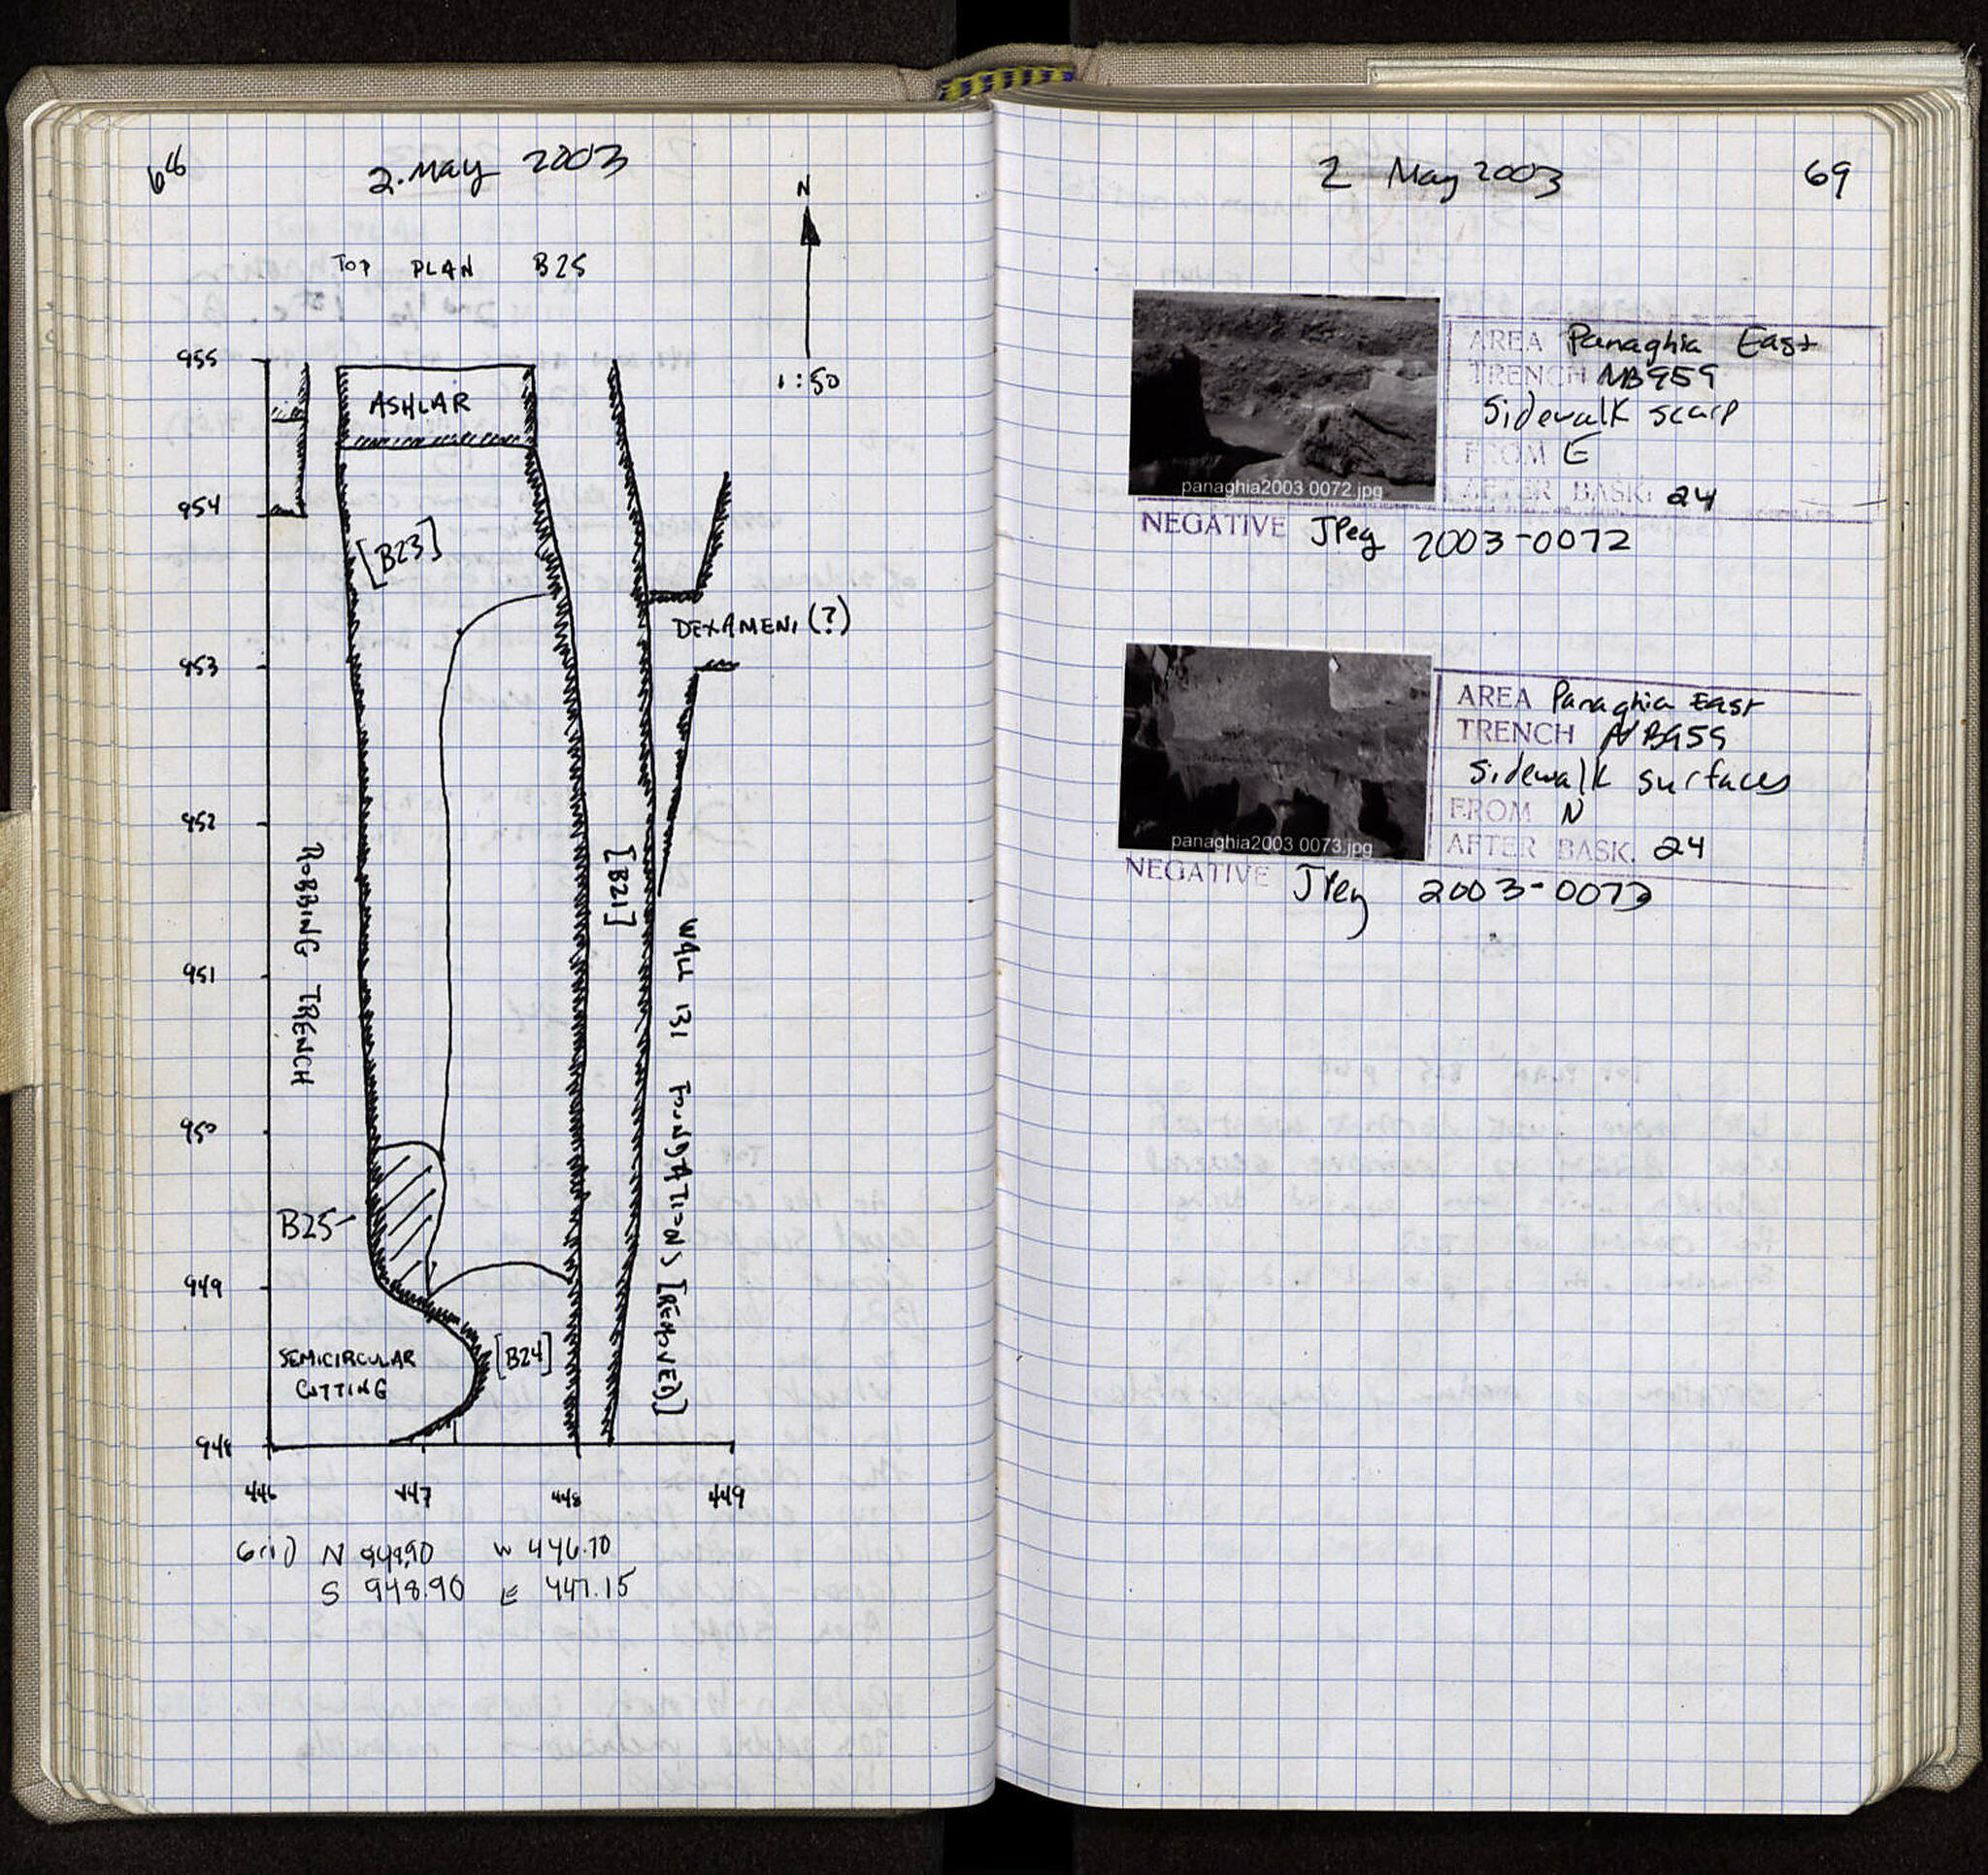 68
2. May 2003
N
TOP PLAN B25
1:50
955
ASHLAR
954
[B23]
DEXAMENI (?)
953
952
ROBBING TRENCH
[B21]
WALL 131 FOUNDATIONS [REMOVED]
951
950
B25
949
SEMICIRCULAR
CUTTING
[B24]
948
446 447 448 449
Grid N 949.90 W 446.70
S 948.90 E 447.15
2 May 2003
69
panaghia2003 0072.jpg
AREA Panaghia East
TRENCH NB959
Sidewalk scarp
FROM E
AFTER BASK. 24
NEGATIVE JPeg 2003-0072
panaghia2003 0073.jpg
AREA Panaghia East
TRENCH NB959
Sidewalk surfaces
FROM N
AFTER BASK. 24
NEGATIVE JPeg 2003-0073